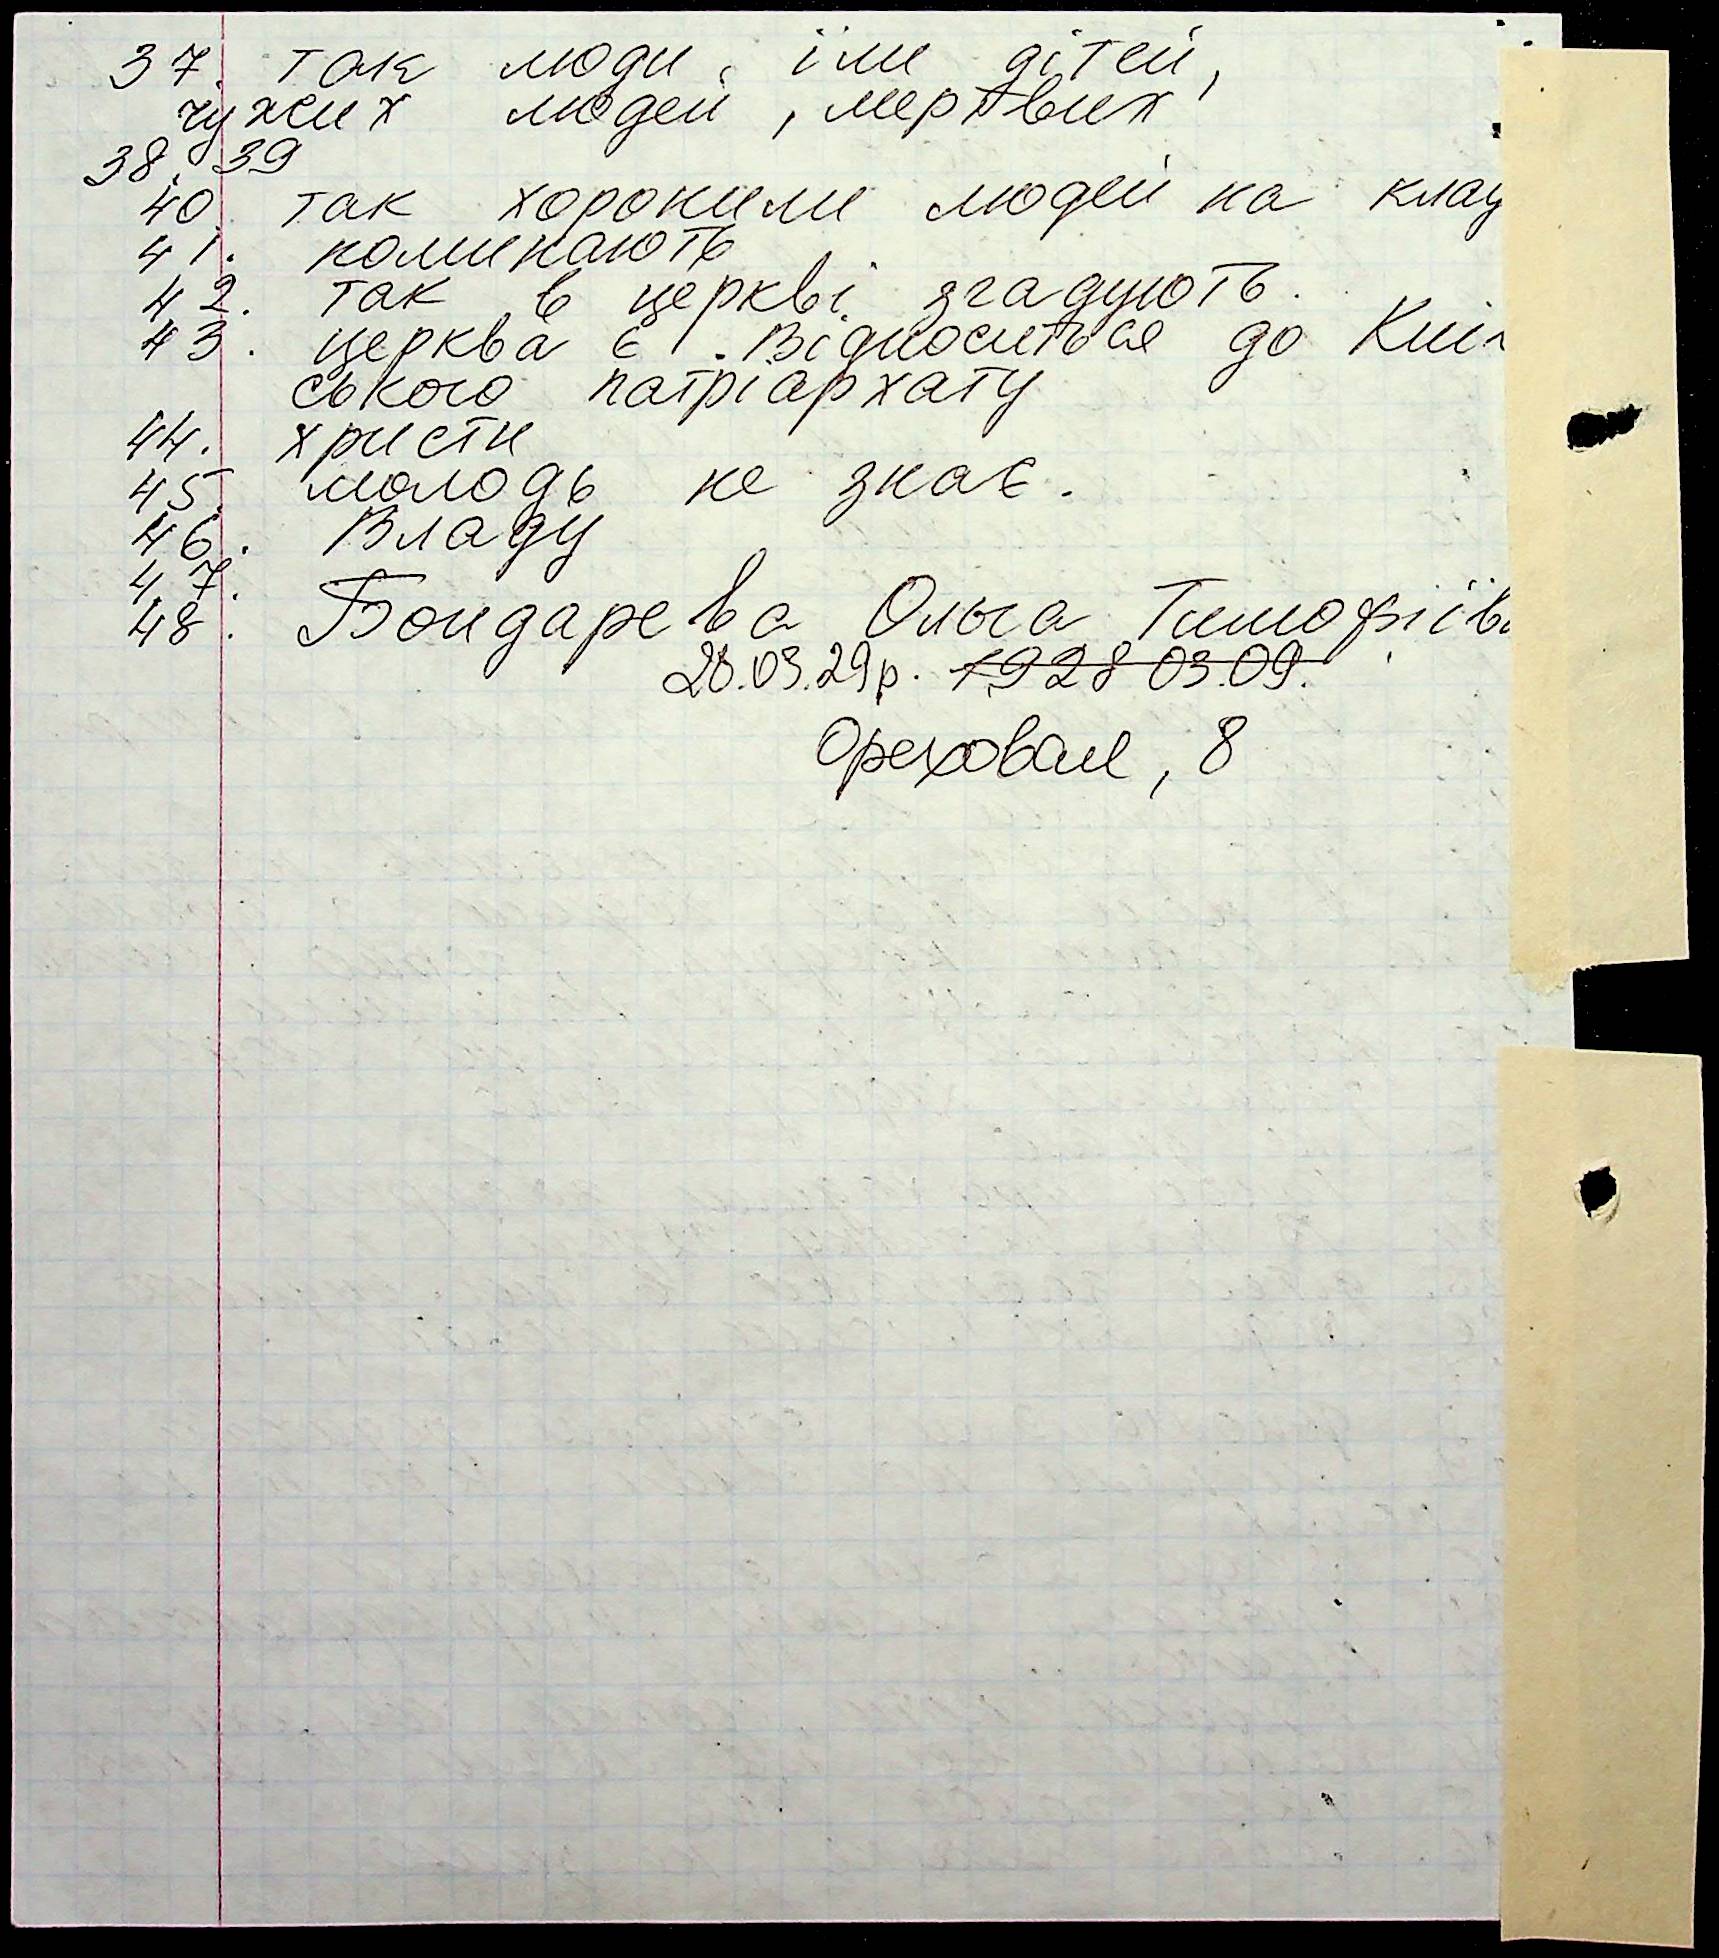 37. так люди, їли дітей,
чужих людей, мертвих
38. 39
40. так хоронили людей на клад
41. поминають
42. так в церкві згадують.
43. церква є. Відноситься до Київ
ського патріархату
44. христи
45. молодь не знає.
46. Владу
47.
48. Бондарева Ольга Тимофіїв
28.03.29р. 1928 03.09.
Ореховая, 8